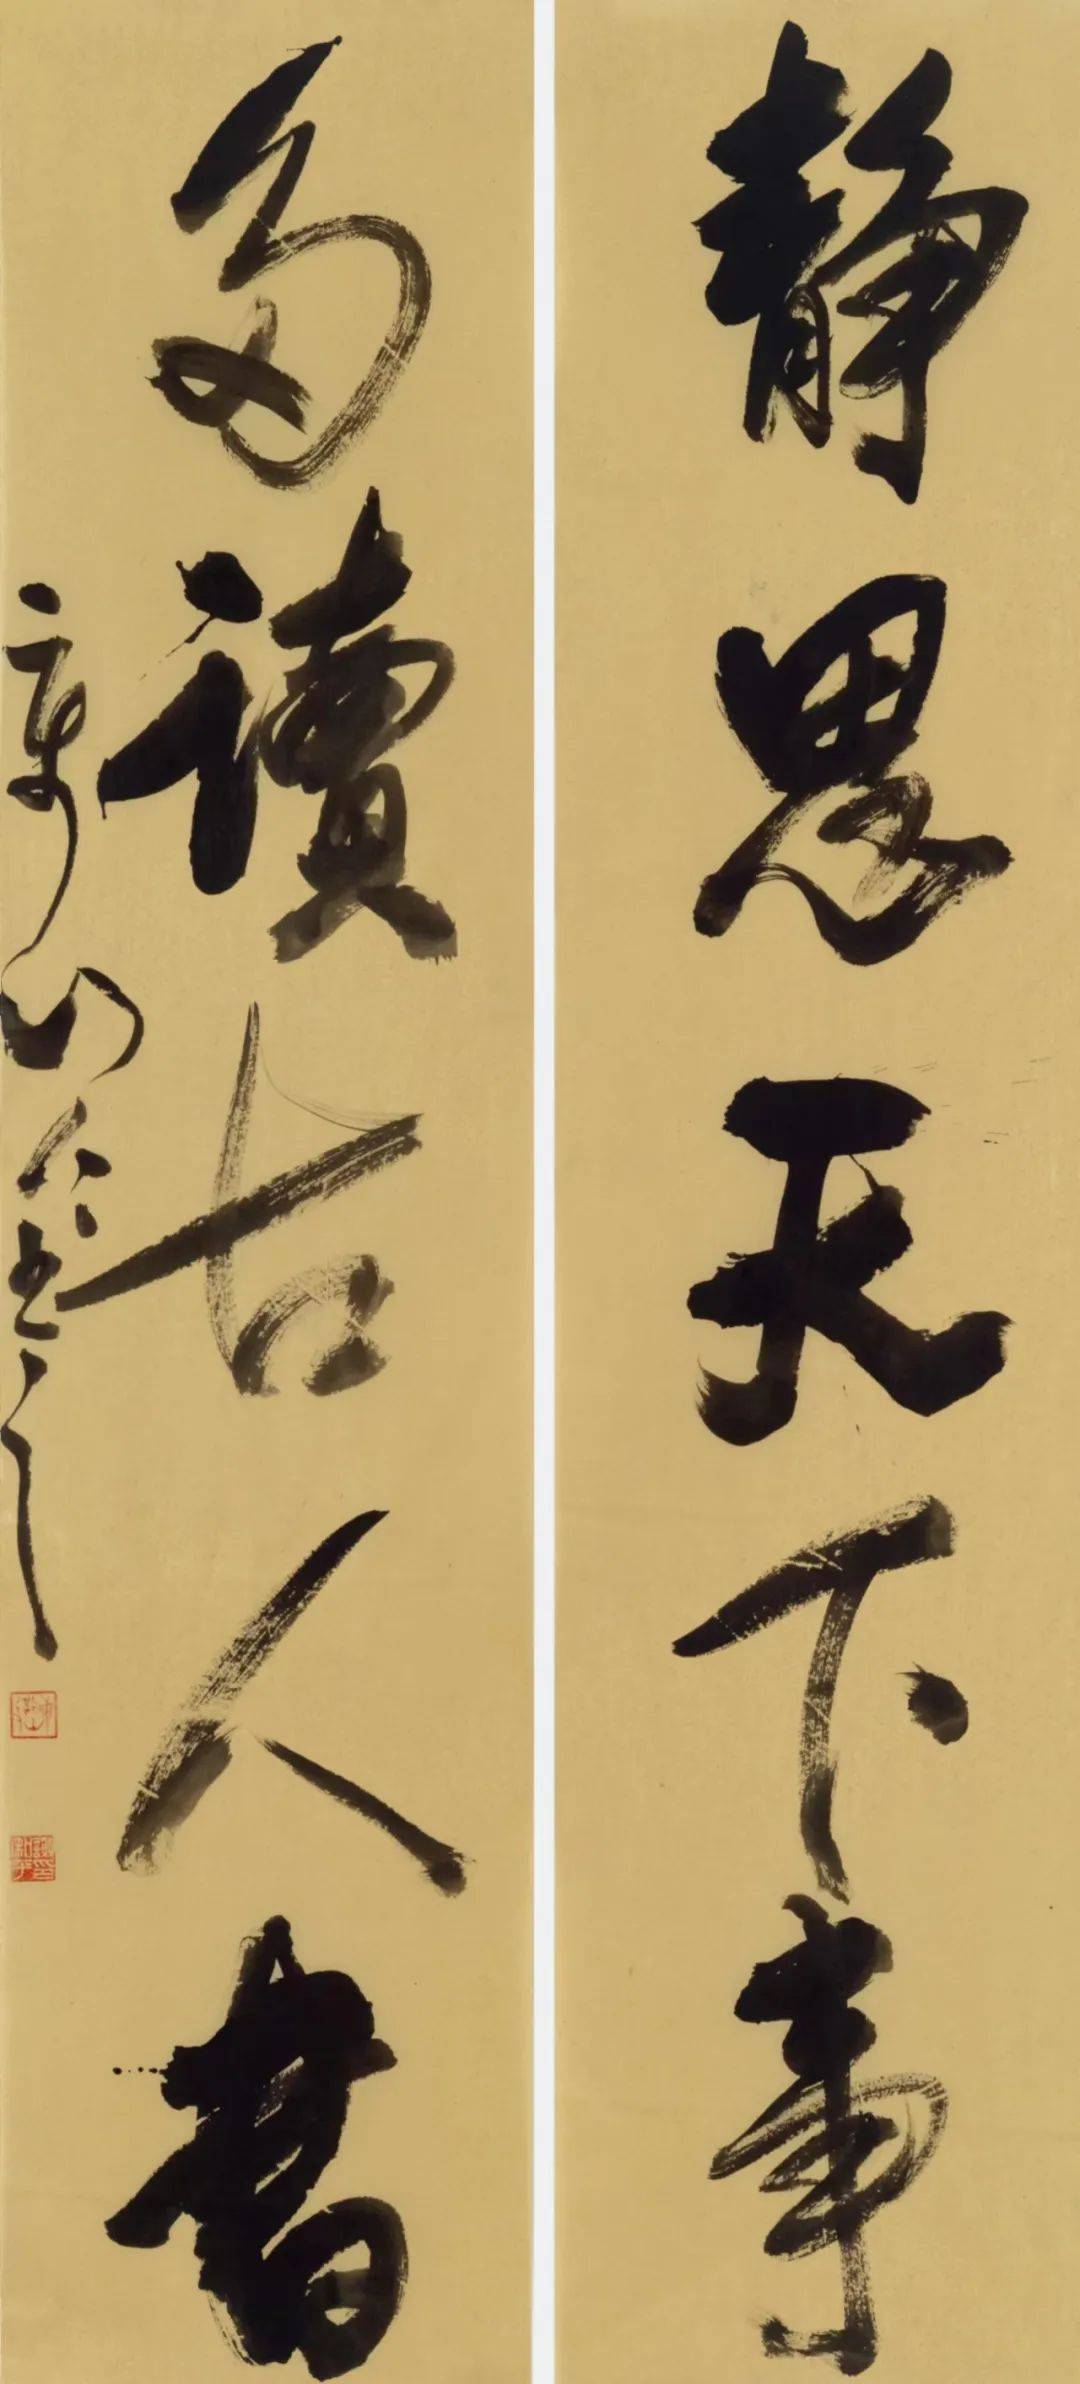 靜思天下事
多讀古人書